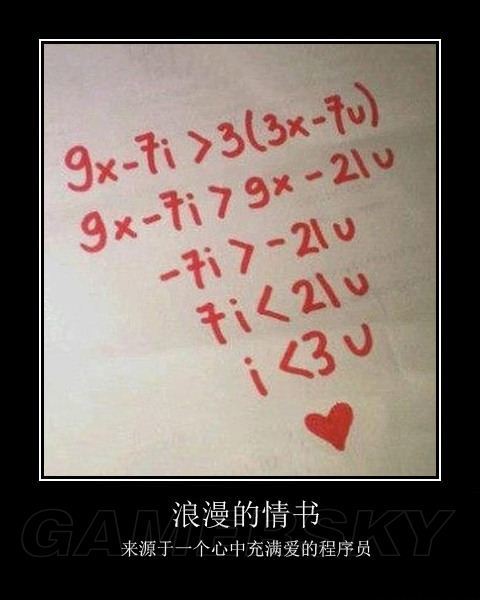 9x-7i>3(3x-7u)
9x-7i>9x-21u
-7i>-21u
7i<21u
i<3u
浪漫的情书
GAMERSKY
来源于一个心中充满爱的程序员